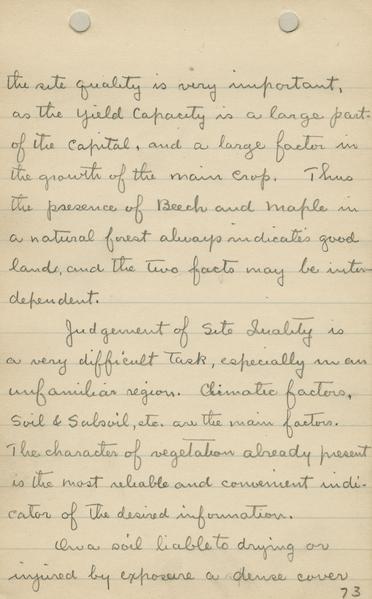 the site quality is very important,
as the Yield Capacity is a large part
of the Capital, and a large factor in
the growth of the main crop. Thus
the presence of Beech and Maple in
a natural forest always indicates good
land, and the two facts may be inter-
dependent.
Judgement of Site Quality is
a very difficult Task, especially in an
unfamiliar region. Climatic factors,
Soil & Subsoil, etc. are the main factors.
The character of vegetation already present
is the most reliable and convenient indi-
cator of the desired information.
On a soil liable to drying or
injured by exposure a dense cover
73